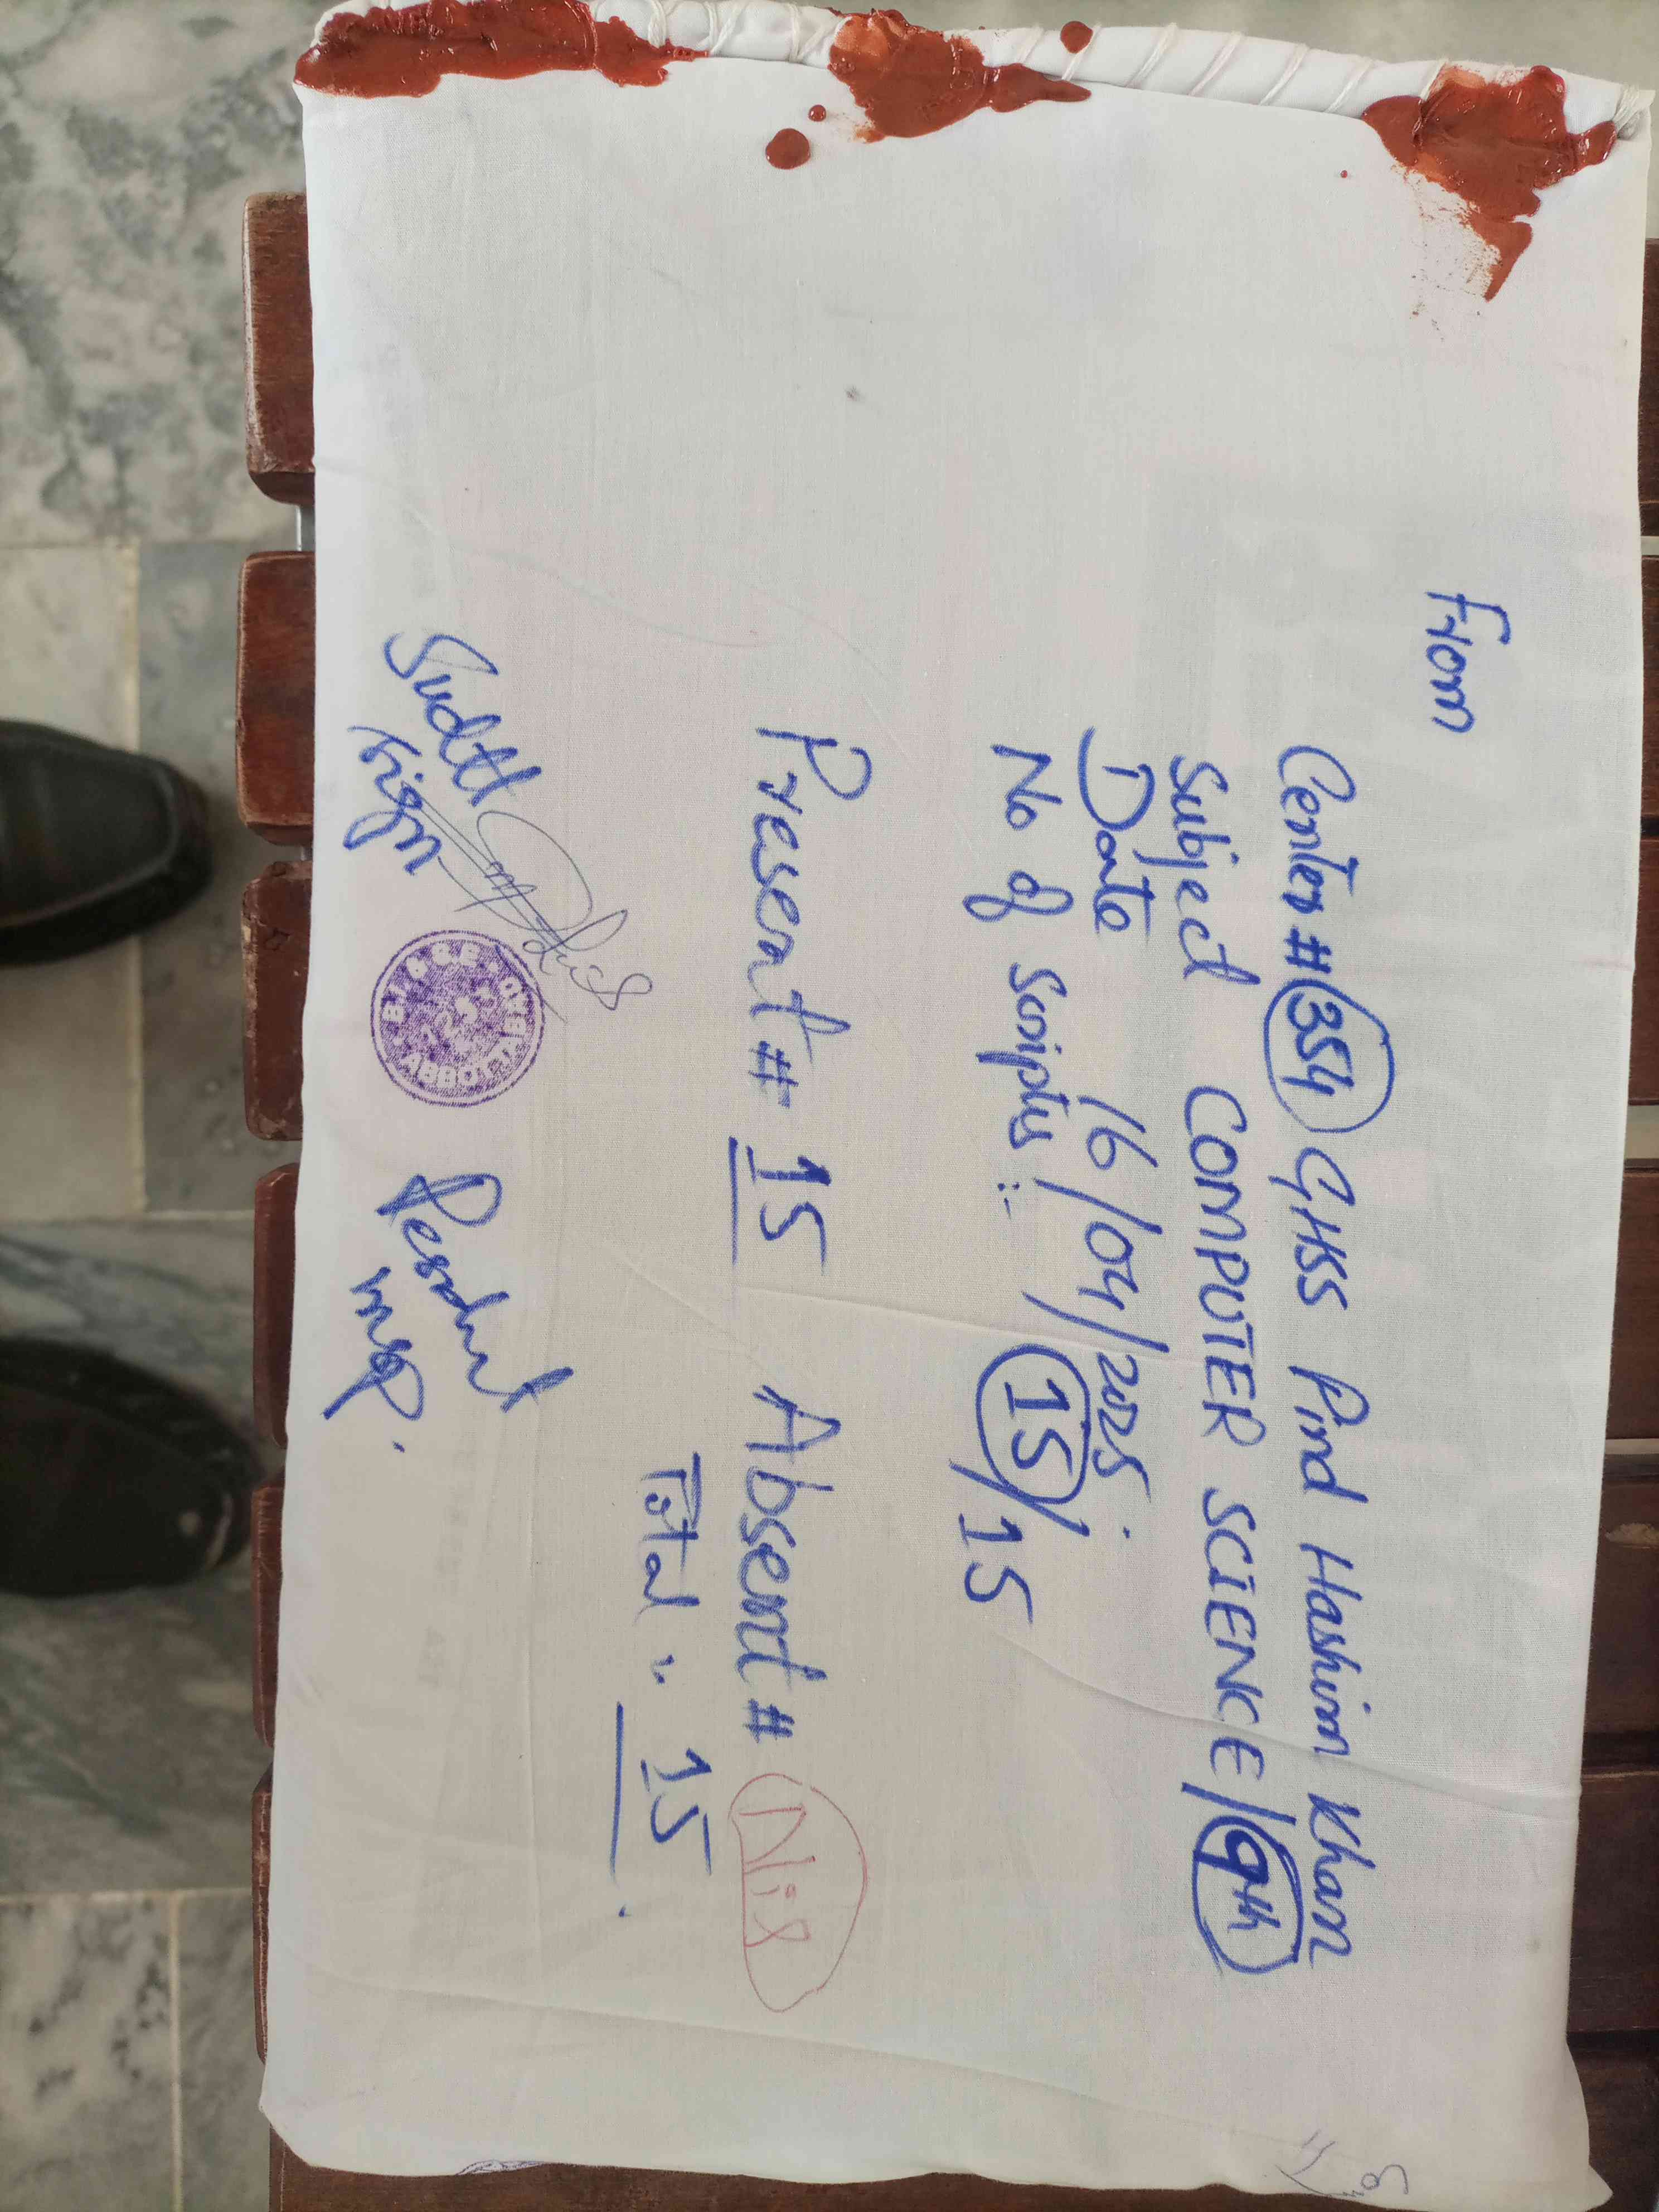 From
Center # 354 GHSS Pind Hashim Khan
Subject COMPUTER SCIENCE/9th
Date 16/04/2025.
No of Scripts :- 15/15
Present # 15 Absent # Nil
Total :- 15.
Supdtt
Sign
B.I. & S.E.
ABBOTTABAD